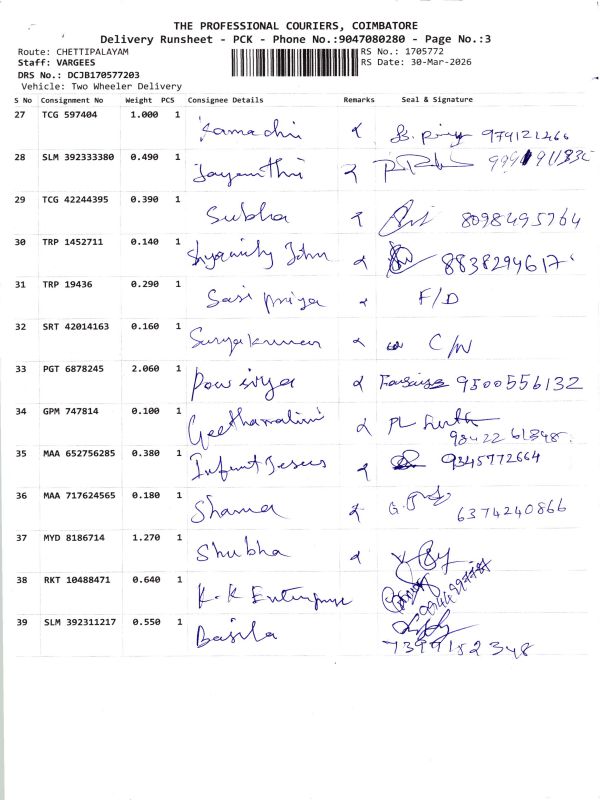 THE PROFESSIONAL COURIERS, COIMBATORE
Delivery Runsheet - PCK - Phone No.:9047080280 - Page No.:3
Route: CHETTIPALAYAM RS No.: 1705772
Staff: VARGEES RS Date: 30-Mar-2026
DRS No.: DCJB170577203
Vehicle: Two Wheeler Delivery
S No Consignment No Weight PCS Consignee Details Remarks Seal & Signature
27 TCG 597404 1.000 1 Kamachi
28 SLM 392333380 0.490 1 Jayanthi
29 TCG 42244395 0.390 1 Subha 8098495764
30 TRP 1452711 0.140 1 John 8838294617
31 TRP 19436 0.290 1 Sasi priya F/D
32 SRT 42014163 0.160 1 Suryakumar
33 PGT 6878245 2.060 1 9500556132
34 GPM 747814 0.100 1 Geethamalini
35 MAA 652756285 0.380 1 Infant Jesus 9345772664
36 MAA 717624565 0.180 1 Shama 6374240866
37 MYD 8186714 1.270 1 Shubha
38 RKT 10488471 0.640 1 K.K Enterprise
39 SLM 392311217 0.550 1 Basila
7399152348